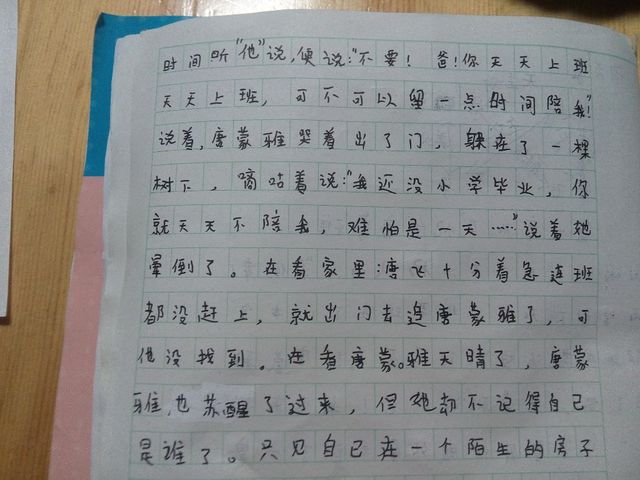 时间听"他"说,便说:"不要!爸!你天天上班
天天上班,可不可以留一点时间陪我"!
说着,唐蒙雅哭着出了门,躲在了一棵
树下,嘀咕着说:"我还没小学毕业,你
就天天不陪我,难怕是一天……"说着她
晕倒了。在看家里:唐飞十分着急连班
都没赶上,就出门去追唐蒙雅了,可
他没找到。在看唐蒙。雅天晴了,唐蒙
雅,也苏醒了过来,但她却不记得自己
是谁了。只见自己在一个陌生的房子